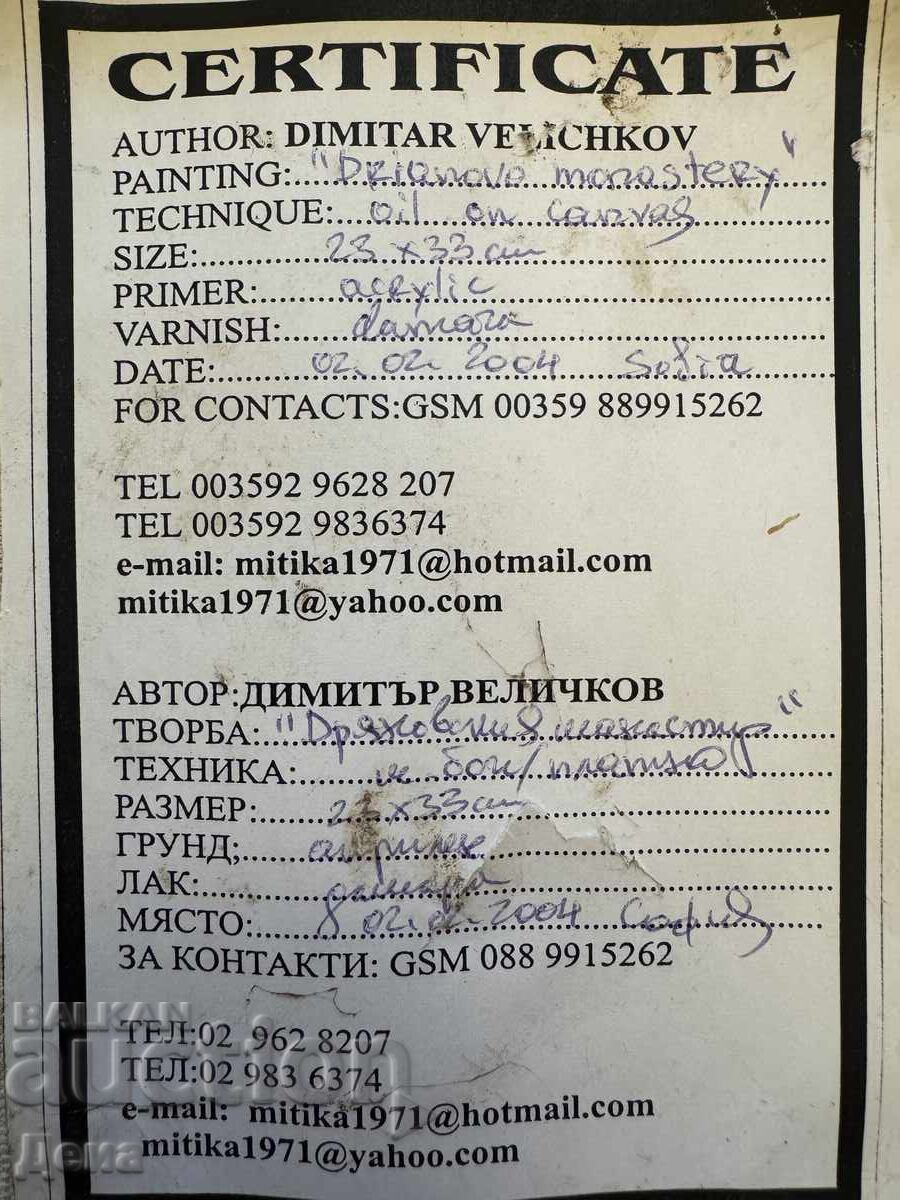 CERTIFICATE
AUTHOR: DIMITAR VELICHKOV
PAINTING:..."Drianovo monastery"
TECHNIQUE:....oil on canvas
SIZE:............23 x 33 cm
PRIMER:.........acrylic
VARNISH:........damara
DATE:...........02.02.2004 Sofia
FOR CONTACTS:GSM 00359 889915262
TEL 003592 9628 207
TEL 003592 9836374
e-mail: mitika1971@hotmail.com
mitika1971@yahoo.com
АВТОР:ДИМИТЪР ВЕЛИЧКОВ
ТВОРБА:.."Дряновския манастир"
ТЕХНИКА:.........м. бои/платно
РАЗМЕР:.......23 x 33 cm
ГРУНД;.......акрилен
ЛАК:............дамара
МЯСТО:........02.02.2004 София
ЗА КОНТАКТИ: GSM 088 9915262
ТЕЛ:02 962 8207
ТЕЛ:02 983 6374
e-mail: mitika1971@hotmail.com
mitika1971@yahoo.com
BALKAN
auction
Дена